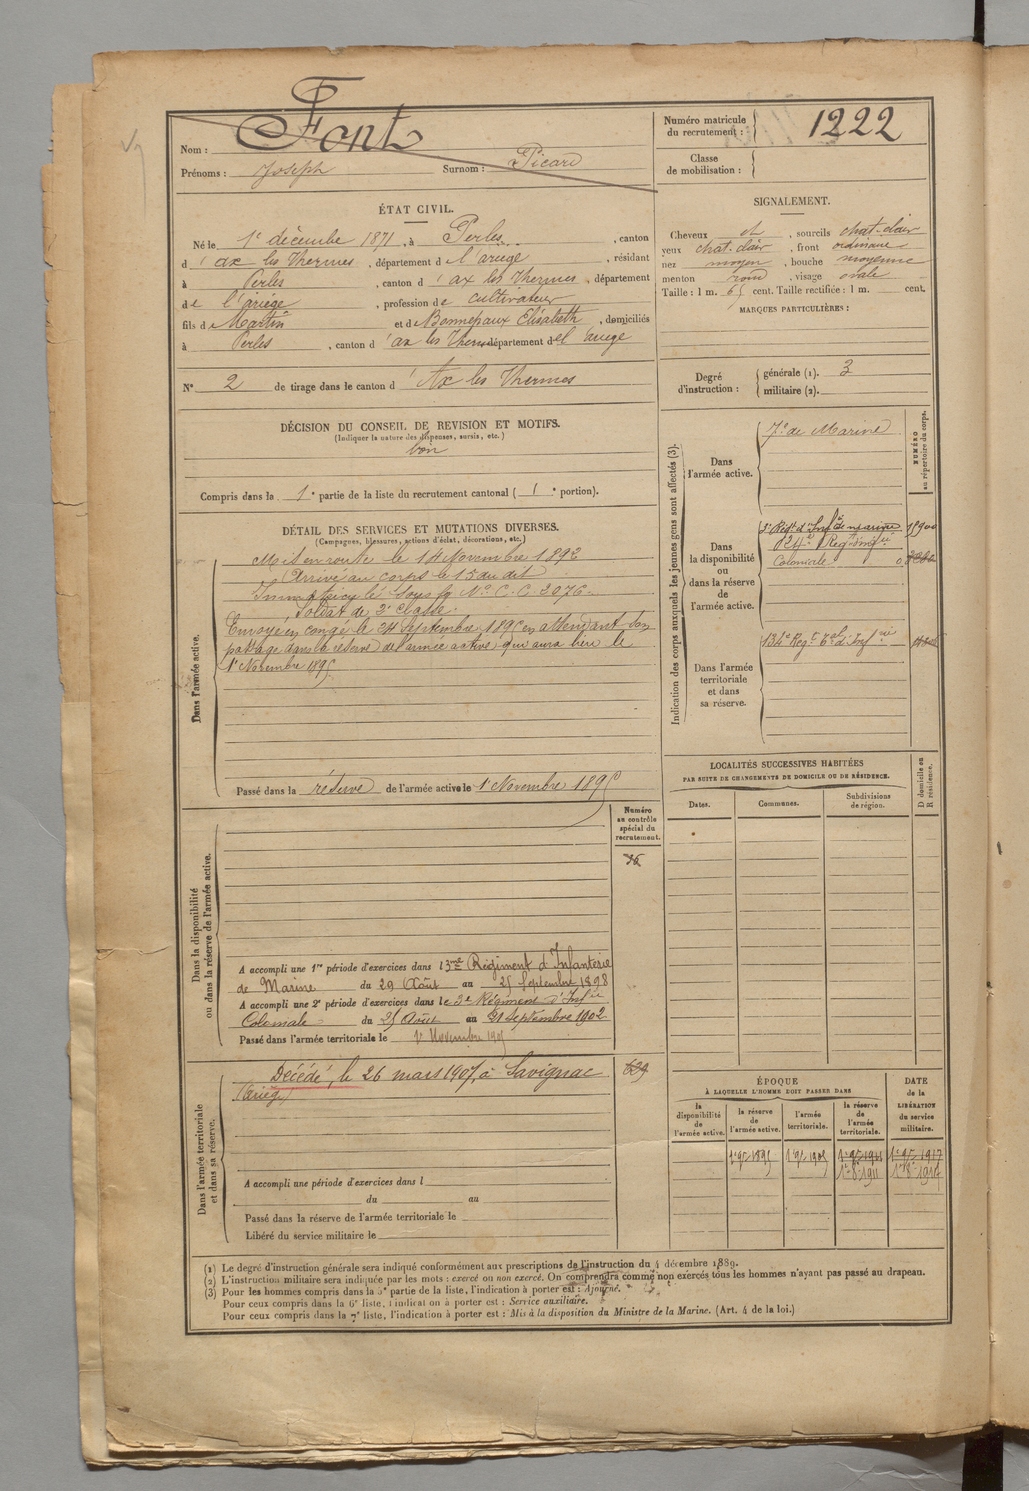 Nom : Font
Prénoms : Joseph Surnom : Picard
Numéro matricule du recrutement : 1222
Classe de mobilisation :
ÉTAT CIVIL.
Né le 1er décembre 1871, à Perles, canton
d'ax les Thermes, département de l'ariège, résidant
à Perles, canton d'ax les Thermes, département
de l'ariège, profession de cultivateur
fils de Martin et de Bonnepaux Elisabeth, domiciliés
à Perles, canton d'ax les Thermes département de l'ariege
N° 2 de tirage dans le canton d'Ax les Thermes
SIGNALEMENT.
Cheveux ch, sourcils chat-clair
yeux chat. clair, front ordinaire
nez moyen, bouche moyenne
menton rond, visage ovale
Taille : 1 m. 65 cent. Taille rectifiée : 1 m. cent.
MARQUES PARTICULIÈRES :
Degré d'instruction : générale (1). 3
militaire (2).
DÉCISION DU CONSEIL DE REVISION ET MOTIFS.
(Indiquer la nature des dispenses, sursis, etc.)
bon
Compris dans la 1e partie de la liste du recrutement cantonal (1e portion).
DÉTAIL DES SERVICES ET MUTATIONS DIVERSES.
(Campagnes, blessures, actions d'éclat, décorations, etc.)
Dans l'armée active.
Mis en route le 14 Novembre 1892
Arrivé au corps le 15 du dit
Immatriculé sous le N° C. C. 2976
Soldat de 2e classe.
Envoyé en congé le 24 Septembre 1895 en attendant son
passage dans la réserve de l'armée active qui aura lieu le
1er Novembre 1895
Passé dans la réserve de l'armée active le 1er Novembre 1895
Indication des corps auxquels les jeunes gens sont affectés (3).
NUMÉRO au répertoire du corps.
Dans l'armée active.
7e de Marine
Dans la disponibilité ou dans la réserve de l'armée active.
3e Regt d'Inf de marine
Coloniale
Dans l'armée territoriale et dans sa réserve.
134e Regt Tal d'Infie
LOCALITÉS SUCCESSIVES HABITÉES
PAR SUITE DE CHANGEMENTS DE DOMICILE OU DE RÉSIDENCE.
Dates. Communes. Subdivisions de région. D domicile ou R résidence.
Numéro au contrôle spécial du recrutement.
Dans la disponibilité ou dans la réserve de l'armée active.
A accompli une 1re période d'exercices dans 13me Régiment d'Infanterie
de Marine du 29 Août au 25 Septembre 1898
A accompli une 2e période d'exercices dans le 3e Régiment d'Infie
Coloniale du 25 Août au 21 Septembre 1902
Passé dans l'armée territoriale le 1er Novembre 1905
Dans l'armée territoriale et dans sa réserve.
Décédé, le 26 mars 1907, à Savignac
(Arieg)
639
A accompli une période d'exercices dans l
du au
Passé dans la réserve de l'armée territoriale le
Libéré du service militaire le
ÉPOQUE
À LAQUELLE L'HOMME DOIT PASSER DANS
la disponibilité de l'armée active. la réserve de l'armée active. l'armée territoriale. la réserve de l'armée territoriale.
DATE de la LIBÉRATION du service militaire.
1er 9bre 1895 1er 9bre 1905 1er 9bre 1911 1er 9bre 1917
(1) Le degré d'instruction générale sera indiqué conformément aux prescriptions de l'instruction du 4 décembre 1889.
(2) L'instruction militaire sera indiquée par les mots : exercé ou non exercé. On comprendra comme non exercés tous les hommes n'ayant pas passé au drapeau.
(3) Pour les hommes compris dans la 5e partie de la liste, l'indication à porter est : Ajourné.
Pour ceux compris dans la 6e liste, l'indication à porter est : Service auxiliaire.
Pour ceux compris dans la 7e liste, l'indication à porter est : Mis à la disposition du Ministre de la Marine. (Art. 4 de la loi.)